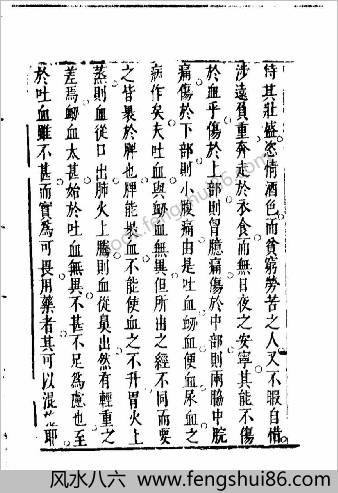 恃其壯盛恣情酒色而貧窮勞苦之人又不暇自惜
涉遠負重奔走於衣食而無日夜之安寧其能不傷
於血乎傷於上部則胷臆痛傷於中部則兩脇中脘
痛傷於下部則小腹痛由是吐血衂血便血尿血之
病作矣夫吐血與衂血無異但所出之經不同而要
之皆裹於脾也脾能裹血不能使血之不升胃火上
蒸則血從口出肺火上騰則血從臭出然有輕重之
差焉衂血太甚始於吐血無異不甚不足爲慮也至
於吐血雖不甚而實爲可畏用藥者其可以混施耶
风水八六－www.fengshui86.com